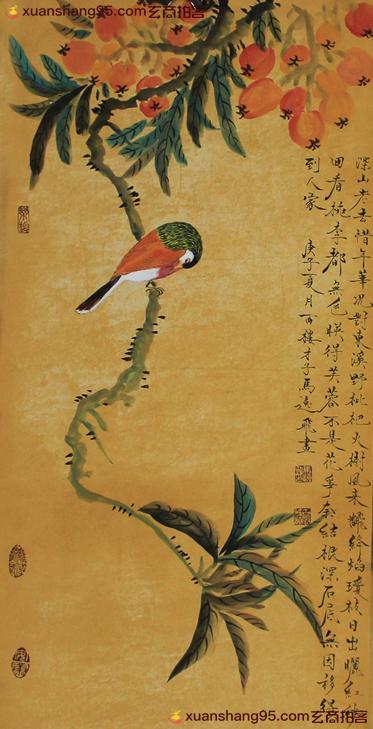 xuanshang95.com玄商拍客
深山老去惜年華況對東溪野枇杷火樹風來飜絳焰瓊枝日出曬紅紗
回看桃李都無色映得芙蓉不是花爭奈結根深石底無因移得
到人家 庚子夏月百樓才子馬遠飛畫
xuanshang95.com玄商拍客